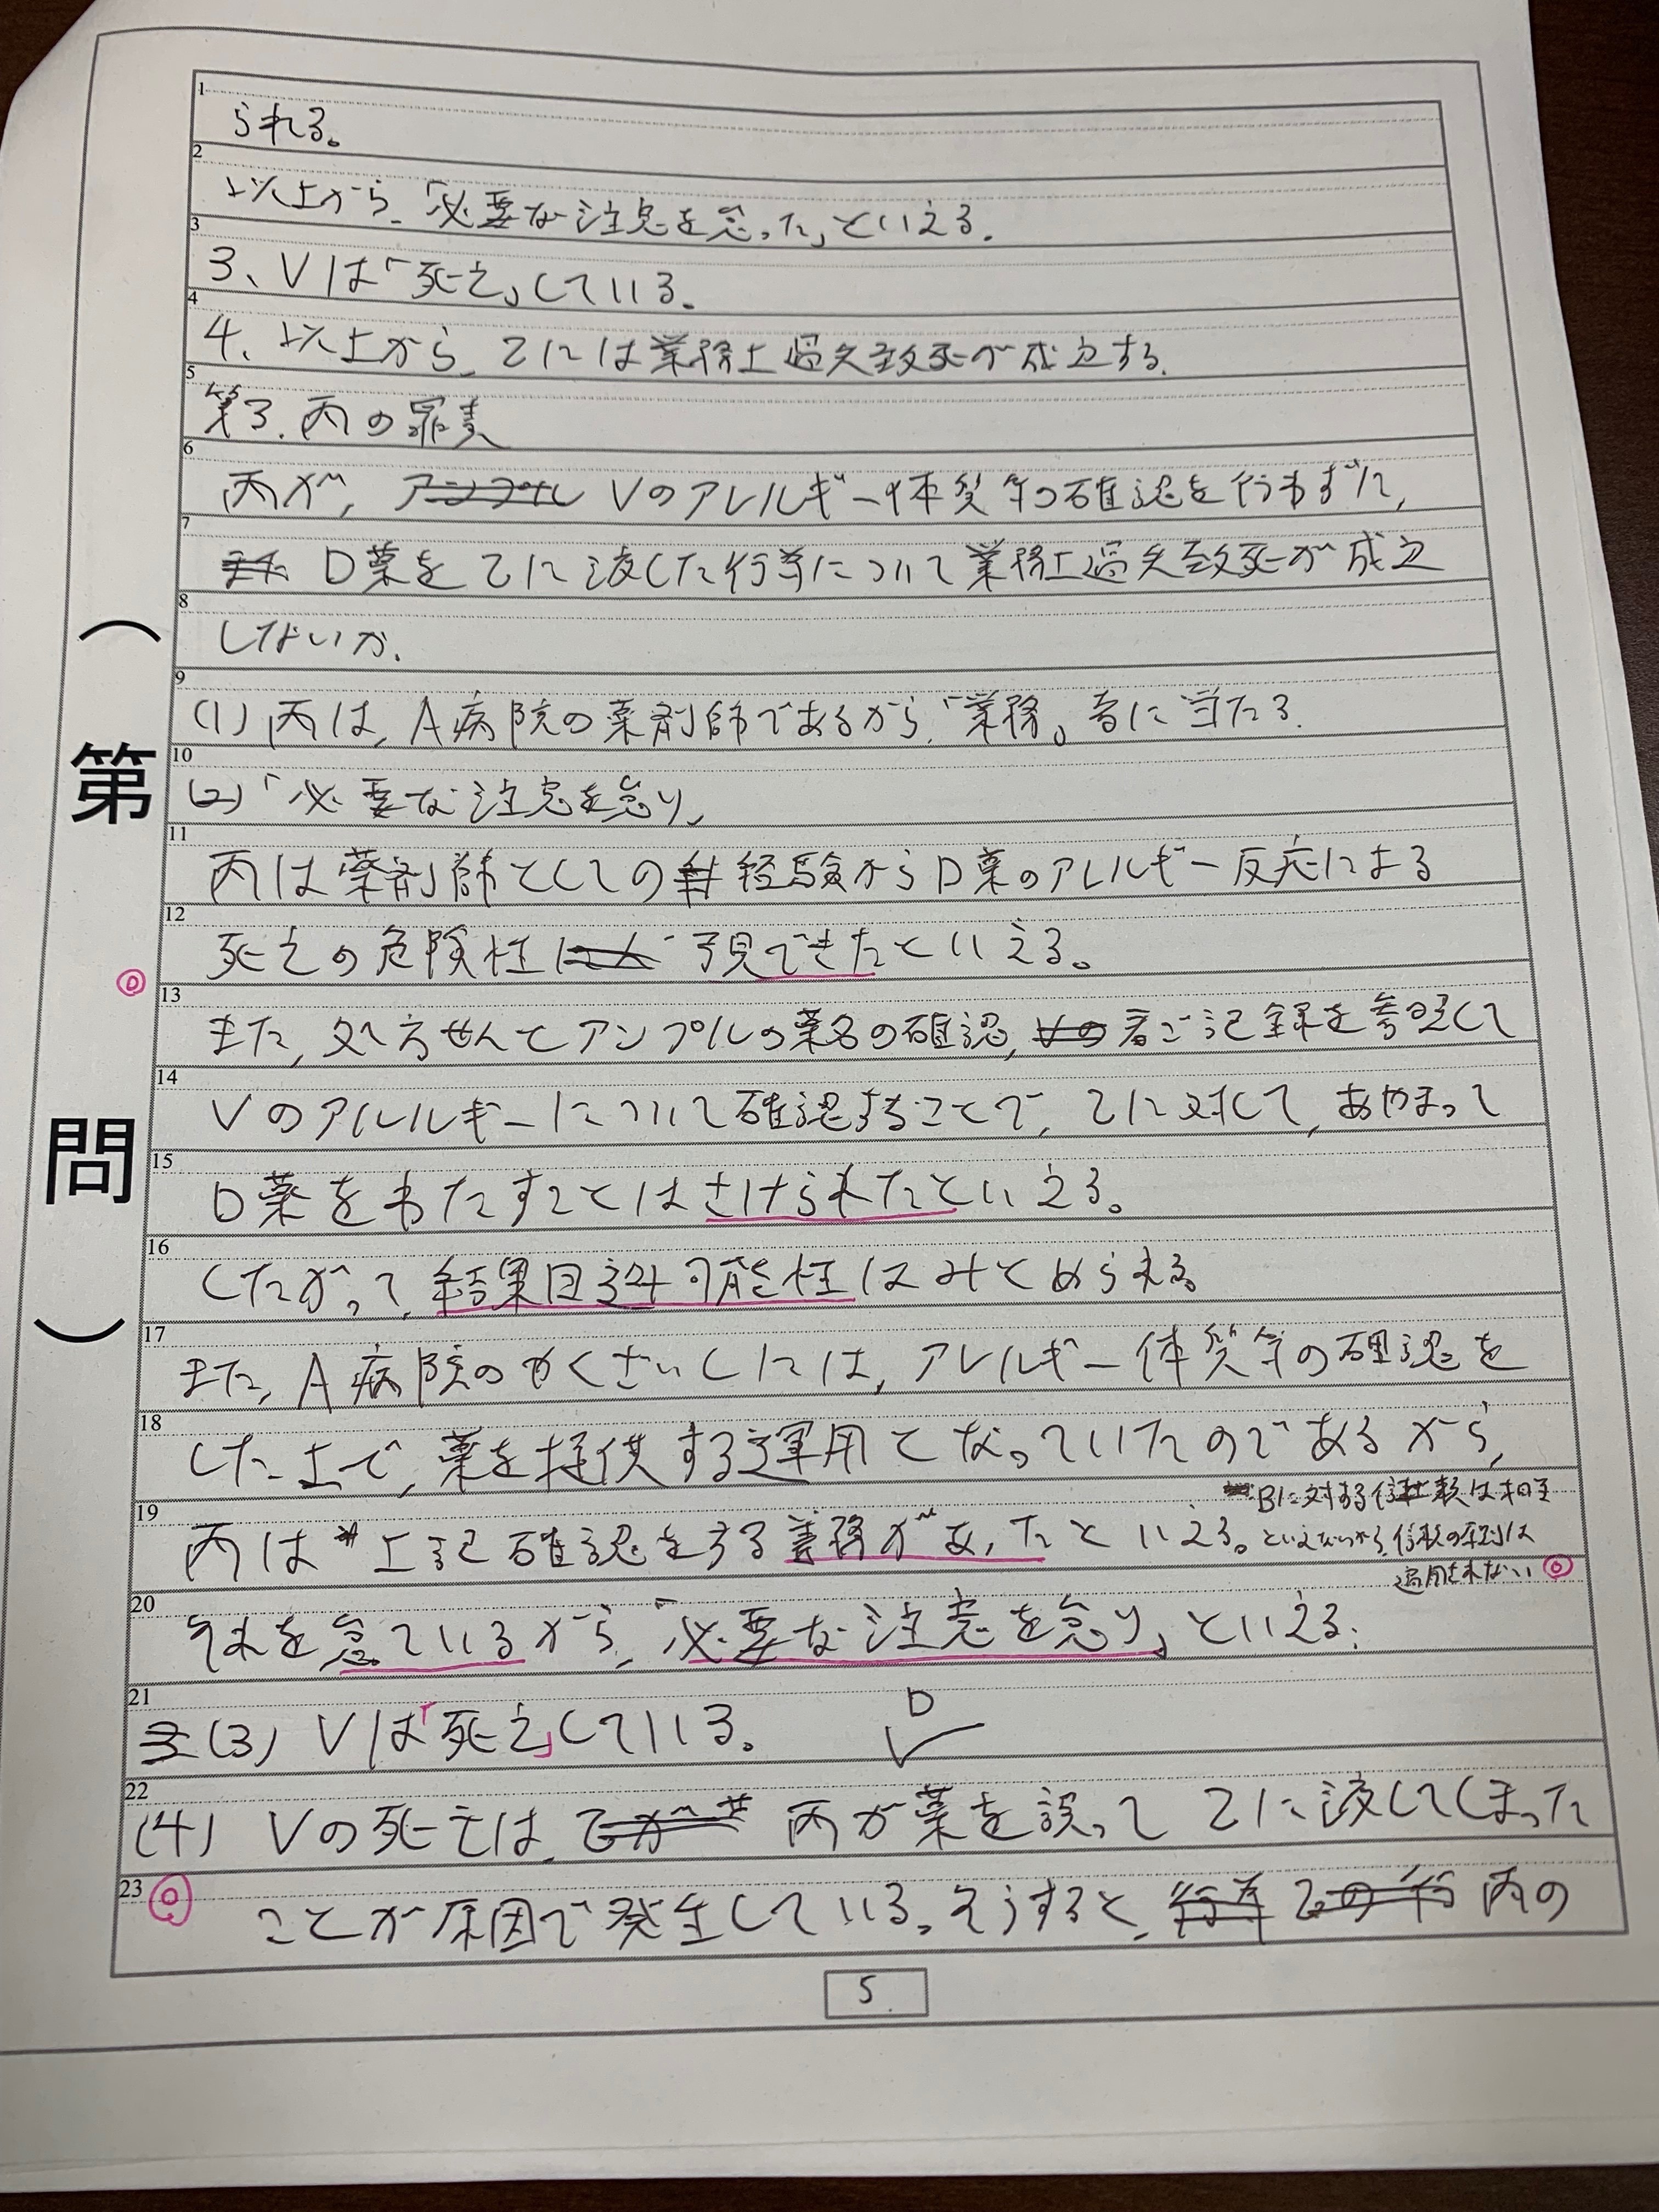 1
られる。
2
以上から、「必要な注意を怠った」といえる。
3
3、Vは「死亡」している。
4
4、以上から、乙には業務上過失致死が成立する。
5
第3.丙の罪責
6
丙が、Vのアレルギー体質等の確認を行わずに、
7
D薬を乙に渡した行為について業務上過失致死が成立
8
しないか。
9
(1) 丙は、A病院の薬剤師であるから、「業務」者に当たる。
10
(2)「必要な注意を怠り」
11
丙は薬剤師としての経験からD薬のアレルギー反応による
12
死亡の危険性は予見できたといえる。
13
また、処方せんとアンプルの薬名の確認、看ご記録を参照して
14
Vのアルルギーについて確認することで、乙に対して、あやまって
15
D薬をわたすことはさけられたといえる。
16
したがって、結果回避可能性はみとめられる。
17
また、A病院のやくざいしには、アレルギー体質等の確認を
18
した上で、薬を提供する運用となっていたのであるから、
19
丙は上記確認をする義務があったといえる。
Bに対する信頼は相当
といえないから、信頼の原則は
適用されない
20
それを怠っているから、「必要な注意を怠り」といえる。
21
(3) Vは「死亡」している。
22
(4) Vの死亡は、丙が薬を誤って乙に渡してしまった
23
ことが原因で発生している。そうすると、丙の
5
(第 問)